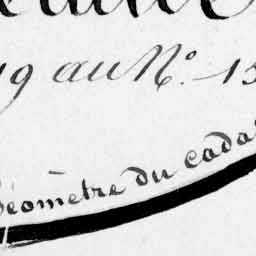 19 au N.º 15
Géomètre du cada